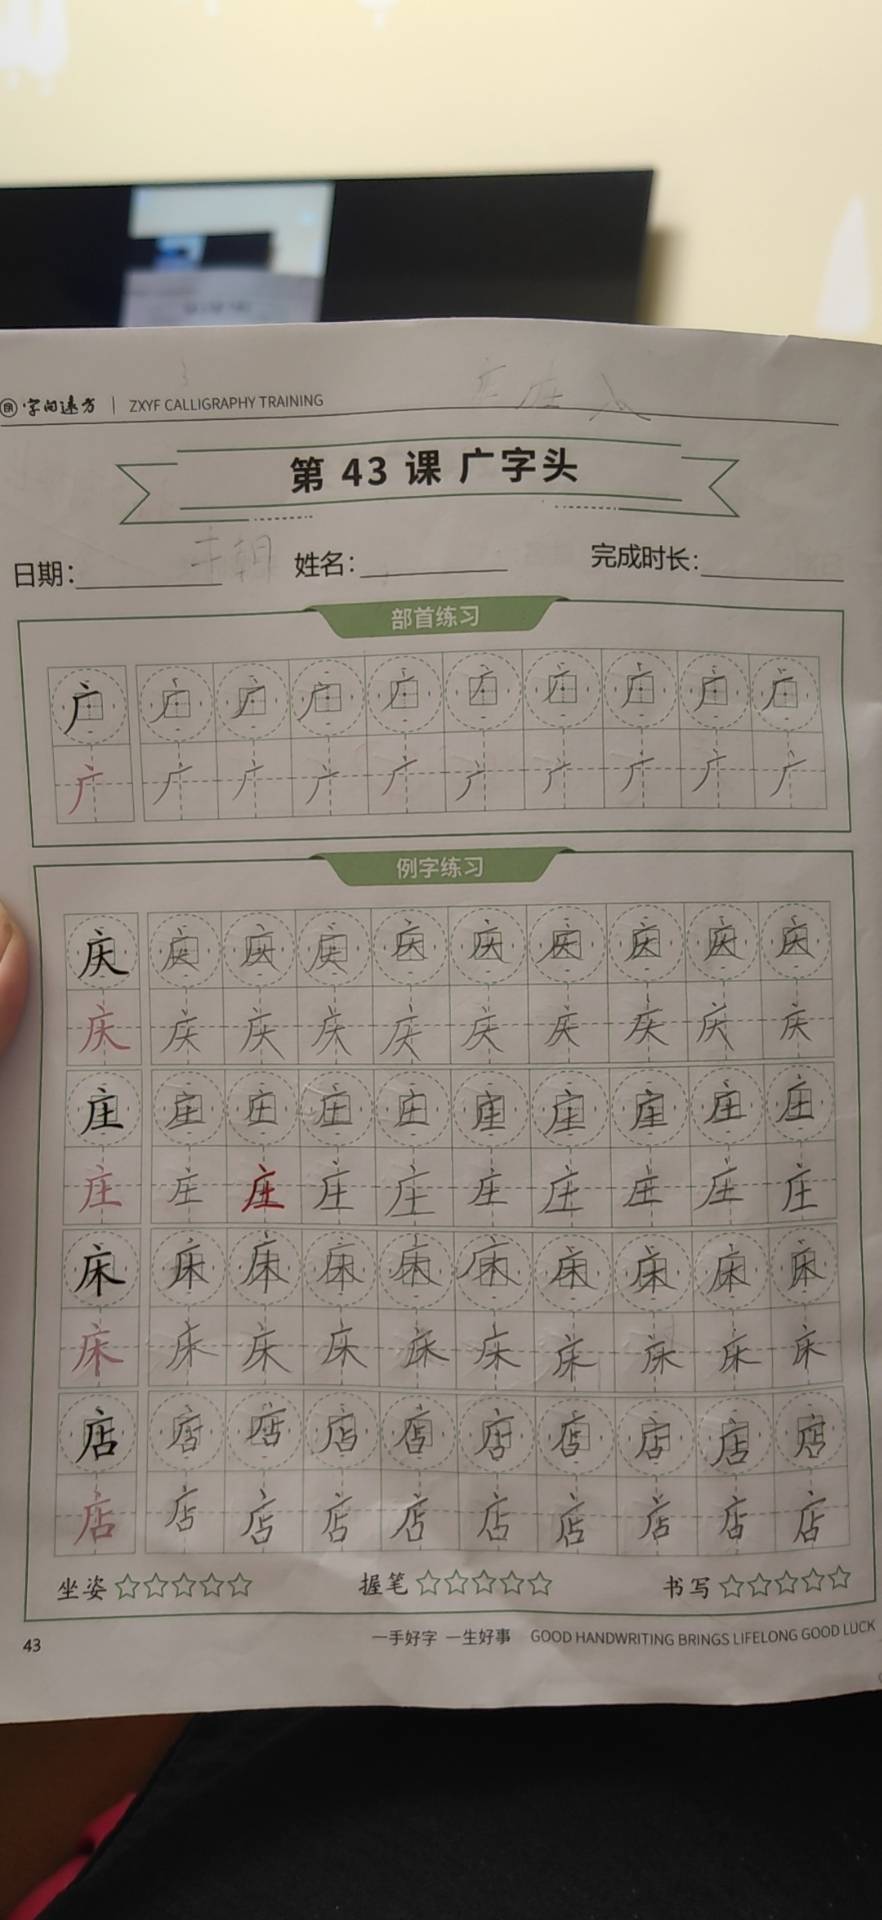 字向远方 | ZXYF CALLIGRAPHY TRAINING
第 43 课 广字头
日期: 姓名: 完成时长:
部首练习
广 广 广 广 广 广 广 广 广 广
广 广 广 广 广 广 广 广 广 广
例字练习
庆 庆 庆 庆 庆 庆 庆 庆 庆 庆
庆 庆 庆 庆 庆 庆 庆 庆 庆 庆
庄 庄 庄 庄 庄 庄 庄 庄 庄 庄
庄 庄 庄 庄 庄 庄 庄 庄 庄 庄
床 床 床 床 床 床 床 床 床 床
床 床 床 床 床 床 床 床 床 床
店 店 店 店 店 店 店 店 店 店
店 店 店 店 店 店 店 店 店 店
坐姿☆☆☆☆☆ 握笔☆☆☆☆☆ 书写☆☆☆☆☆
43 一手好字 一生好事 GOOD HANDWRITING BRINGS LIFELONG GOOD LUCK